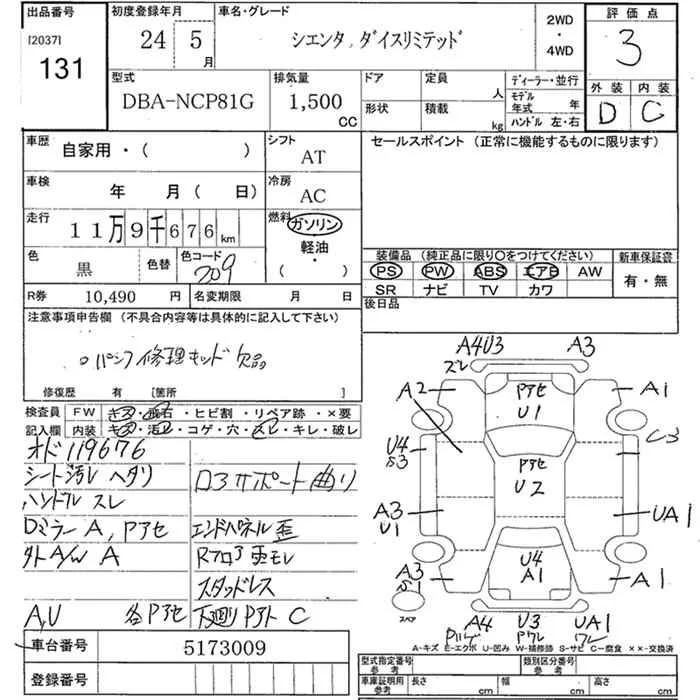 出品番号 初度登録年月 車名・グレード 2WD ・ 4WD 評価点
[2037]
131 24 5 月 シエンタ ダイスリミテッド 3
型式 排気量 ドア 定員 人 ディーラー・並行 外装 内装
DBA-NCP81G 1,500 CC 形状 積載 kg モデル年式 年 D C
ハンドル 左・右
車歴 自家用・( ) シフト AT セールスポイント (正常に機能するものに限ります)
車検 年 月( 日) 冷房 AC
走行 11万9千676 km 燃料 ガソリン
軽油
・
( )
色 黒 色替 色コード 209 装備品 (純正品に限り○をつけてください) 新車保証書
PS PW ABS エアB AW 有・無
SR ナビ TV カワ
R券 10,490 円 名変期限 月 日 後日品
注意事項申告欄 (不具合内容等は具体的に記入して下さい)
パンク修理キッド欠品
修復歴 有 [箇所 ]
検査員 FW キズ・飛石・ヒビ割・リペア跡・×要
記入欄 内装 キズ・汚レ・コゲ・穴・スレ・キレ・破レ
オド119676
シート汚レ ヘタリ ロアサポート曲リ
ハンドル スレ
Dミラー A, Pアセ エンドパネル歪
外A/W A Rフロア
スタッドレス
A,U 各Pアセ 下廻リ C
車台番号 5173009
登録番号
A4U3 A3
ズレ
A2 Pアセ A1
U1
U4 C3
S3 Pアセ
U2
A3 UA1
U1
A3 U4 A1
A1
スペア A4 U3 UA1
Pワレ ワレ
A-キズ E-エクボ U-凹み W-補修跡 S-サビ C-腐食 ××-交換済
型式指定番号 参考 類別区分番号 参考
車庫証明用 参考 長さ cm 幅 cm 高さ cm